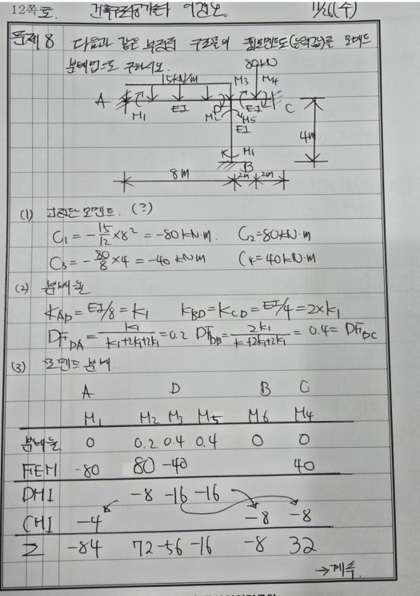 12쪽
11/26(수)
문제 8 다음과 같은 부정정 구조물의 휨모멘트도(응력경)를 모멘트
분배법으로 구하시오. 80kN
15kN/m M3 M4
A M1 EI M2 D EI C
M5
EI 4m
M1
B
8m 2m 2m
(1) 고정단 모멘트. (⤾)
C1 = -15/12 ×8² = -80kN·m C2=80kN·m
C3 = -80/8 ×4 = -40kN·m C4=40kN·m
(2) 분배율
KAD = EI/8 = k1 KBD=KCD = EI/4 = 2×k1
DFDA = k1/k1+2k1+2k1 = 0.2 DFDB = 2k1/k1+2k1+2k1 = 0.4 = DFDC
(3) 모멘트 분배.
A D B C
M1 M2 M3 M5 M6 M4
분배율 0 0.2 0.4 0.4 0 0
FEM -80 80 -40 40
DM1 -8 -16 -16
CM1 -4 -8 -8
Σ -84 72 -56 -16 -8 32
→계속